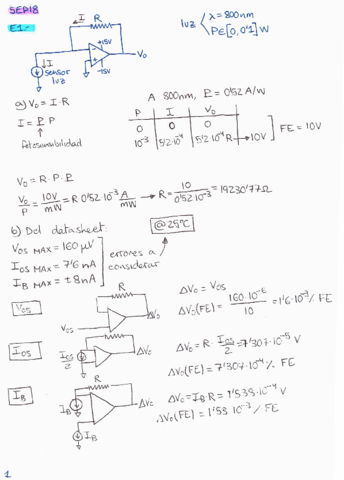 SEP18
E1.-
luz
λ = 800nm
P∈[0, 0'1] W
I
R
+15V
-15V
Vo
I
sensor
luz
a) Vo = I·R
I = P·P
fotosensibilidad
A 800nm, P = 0'52 A/W
P I Vo
0 0 0
10⁻³ 5'2·10⁻⁴ 5'2·10⁻⁴R → 10V
FE = 10V
Vo = R·P·P
Vo/P = 10V/mW = R 0'52·10⁻³ A/mW → R = 10/0'52·10⁻³ = 19230'77Ω
b) Del datasheet:
@25ºC
Vos MAX = 160 μV
Ios MAX = 7'6 nA
IB MAX = ±8nA
errores a
considerar
Vos
R
Vos
ΔVo
ΔVo = Vos
ΔVo(FE) = 160·10⁻⁶/10 = 1'6·10⁻³ % FE
Ios
R
Ios/2
ΔVo
ΔVo = R·Ios/2 = 7'307·10⁻⁵ V
ΔVo(FE) = 7'307·10⁻⁴ % FE
IB
R
IB
IB
ΔVo
ΔVo = IB·R = 1'538·10⁻⁴ V
ΔVo(FE) = 1'53·10⁻³ % FE
1